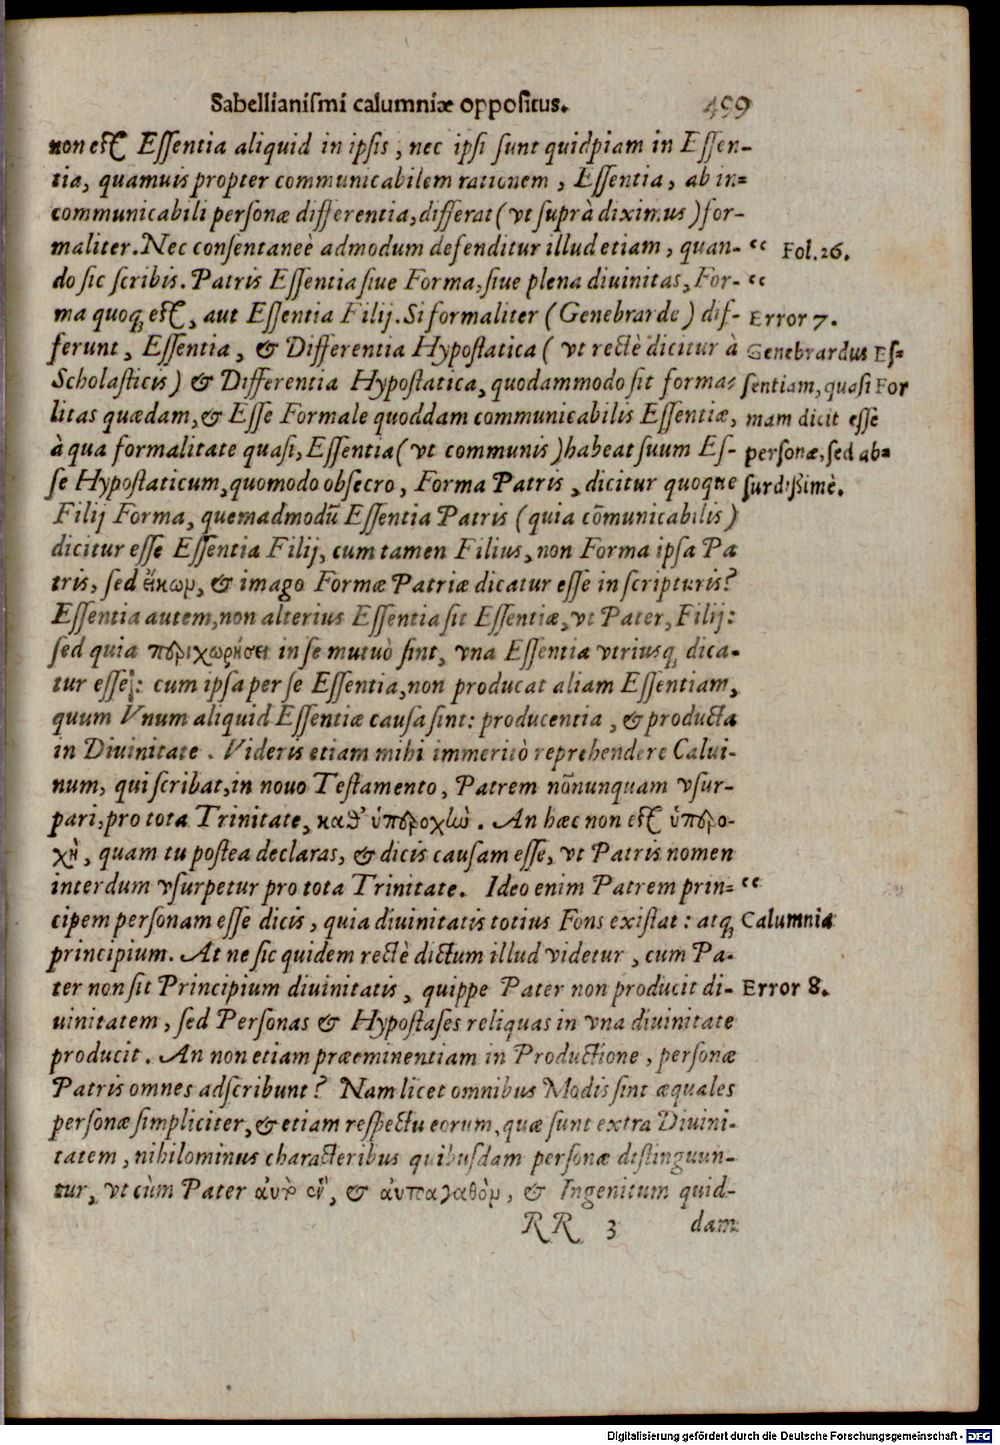 Sabellianiſmi calumniæ oppoſitus. 499
non eſt Eſſentia aliquid in ipſis, nec ipſi ſunt quidpiam in Eſſen-
tia, quamuis propter communicabilem rationem, Eſſentia, ab in-
communicabili perſonæ differentia, differat (vt ſuprà diximus) for-
maliter. Nec conſentaneè admodum defenditur illud etiam, quan-
do ſic ſcribis. Patris Eſſentia ſiue Forma, ſiue plena diuinitas, For-
ma quoq; eſt, aut Eſſentia Filij. Si formaliter (Genebrarde) dif-
ferunt, Eſſentia, & Differentia Hypoſtatica (vt rectè dicitur à
Scholaſticis) & Differentia Hypoſtatica, quodammodo ſit forma-
litas quædam, & Eſſe Formale quoddam communicabilis Eſſentiæ,
à qua formalitate quaſi, Eſſentia (vt communis) habeat ſuum Eſ-
ſe Hypoſtaticum, quomodo obſecro, Forma Patris, dicitur quoque
Filij Forma, quemadmodū Eſſentia Patris (quia cōmunicabilis)
dicitur eſſe Eſſentia Filij, cum tamen Filius, non Forma ipſa Pa
tris, ſed εἴκων, & imago Formæ Patriæ dicatur eſſe in ſcripturis?
Eſſentia autem, non alterius Eſſentia ſit Eſſentiæ, vt Pater, Filij:
ſed quia περιχωρήσει in ſe mutuò ſint, vna Eſſentia vtriuſq; dica-
tur eſſe: cum ipſa per ſe Eſſentia, non producat aliam Eſſentiam,
quum Vnum aliquid Eſſentiæ cauſa ſint: producentia, & producta
in Diuinitate. Videris etiam mihi immeritò reprehendere Calui-
num, qui ſcribat, in nouo Teſtamento, Patrem nōnunquam vſur-
pari, pro tota Trinitate, καθ' ὑπεροχὼ. An hæc non eſt ὑπερο-
χὴ, quam tu poſtea declaras, & dicis cauſam eſſe, vt Patris nomen
interdum vſurpetur pro tota Trinitate. Ideo enim Patrem prin-
cipem perſonam eſſe dicis, quia diuinitatis totius Fons exiſtat: atq;
principium. At ne ſic quidem rectè dictum illud videtur, cum Pa-
ter non ſit Principium diuinitatis, quippe Pater non producit di-
uinitatem, ſed Perſonas & Hypoſtaſes reliquas in vna diuinitate
producit. An non etiam præeminentiam in Productione, perſonæ
Patris omnes adſcribunt? Nam licet omnibus Modis ſint æquales
perſonæ ſimpliciter, & etiam reſpectu eorum, quæ ſunt extra Diuini-
tatem, nihilominus characteribus quibuſdam perſonæ diſtinguun-
tur, vt cùm Pater & & Ingenitum quid-
RR 3 dam
“ Fol. 26.
“
Error 7.
Genebrardus Eſ-
ſentiam, quaſi For
mam dicit eſſe
perſonæ, ſed ab-
ſurdißimè.
“
Calumnia
Error 8.
Digitalisierung gefördert durch die Deutsche Forschungsgemeinschaft - DFG